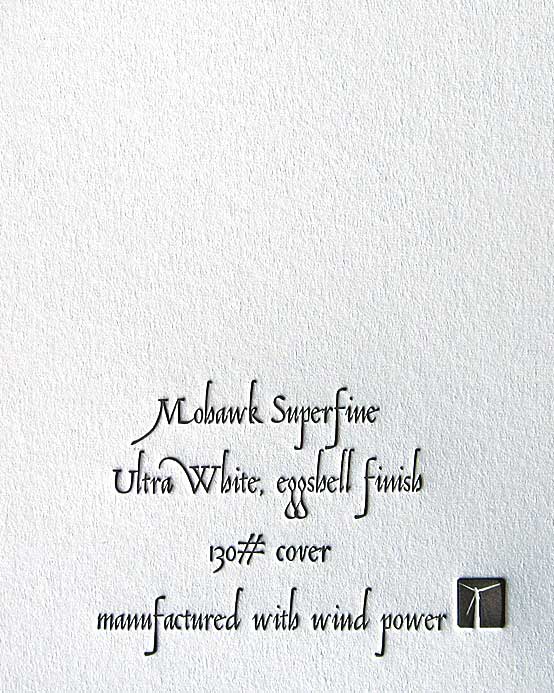 Mohawk Superfine
Ultra White, eggshell finish
130# cover
manufactured with wind power